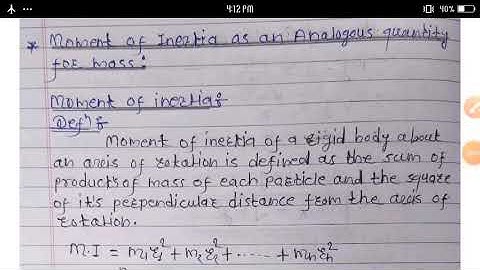 4:12 PM
40%
* Moment of Inertia as an Analogous quantity
for mass:
Moment of inertia:
Defⁿ:
Moment of inertia of a rigid body about
an axis of rotation is defined as the sum of
products of mass of each particle and the square
of it's perpendicular distance from the axis of
rotation.
M.I = m₁r₁² + m₂r₂² + ...... + mₙrₙ²